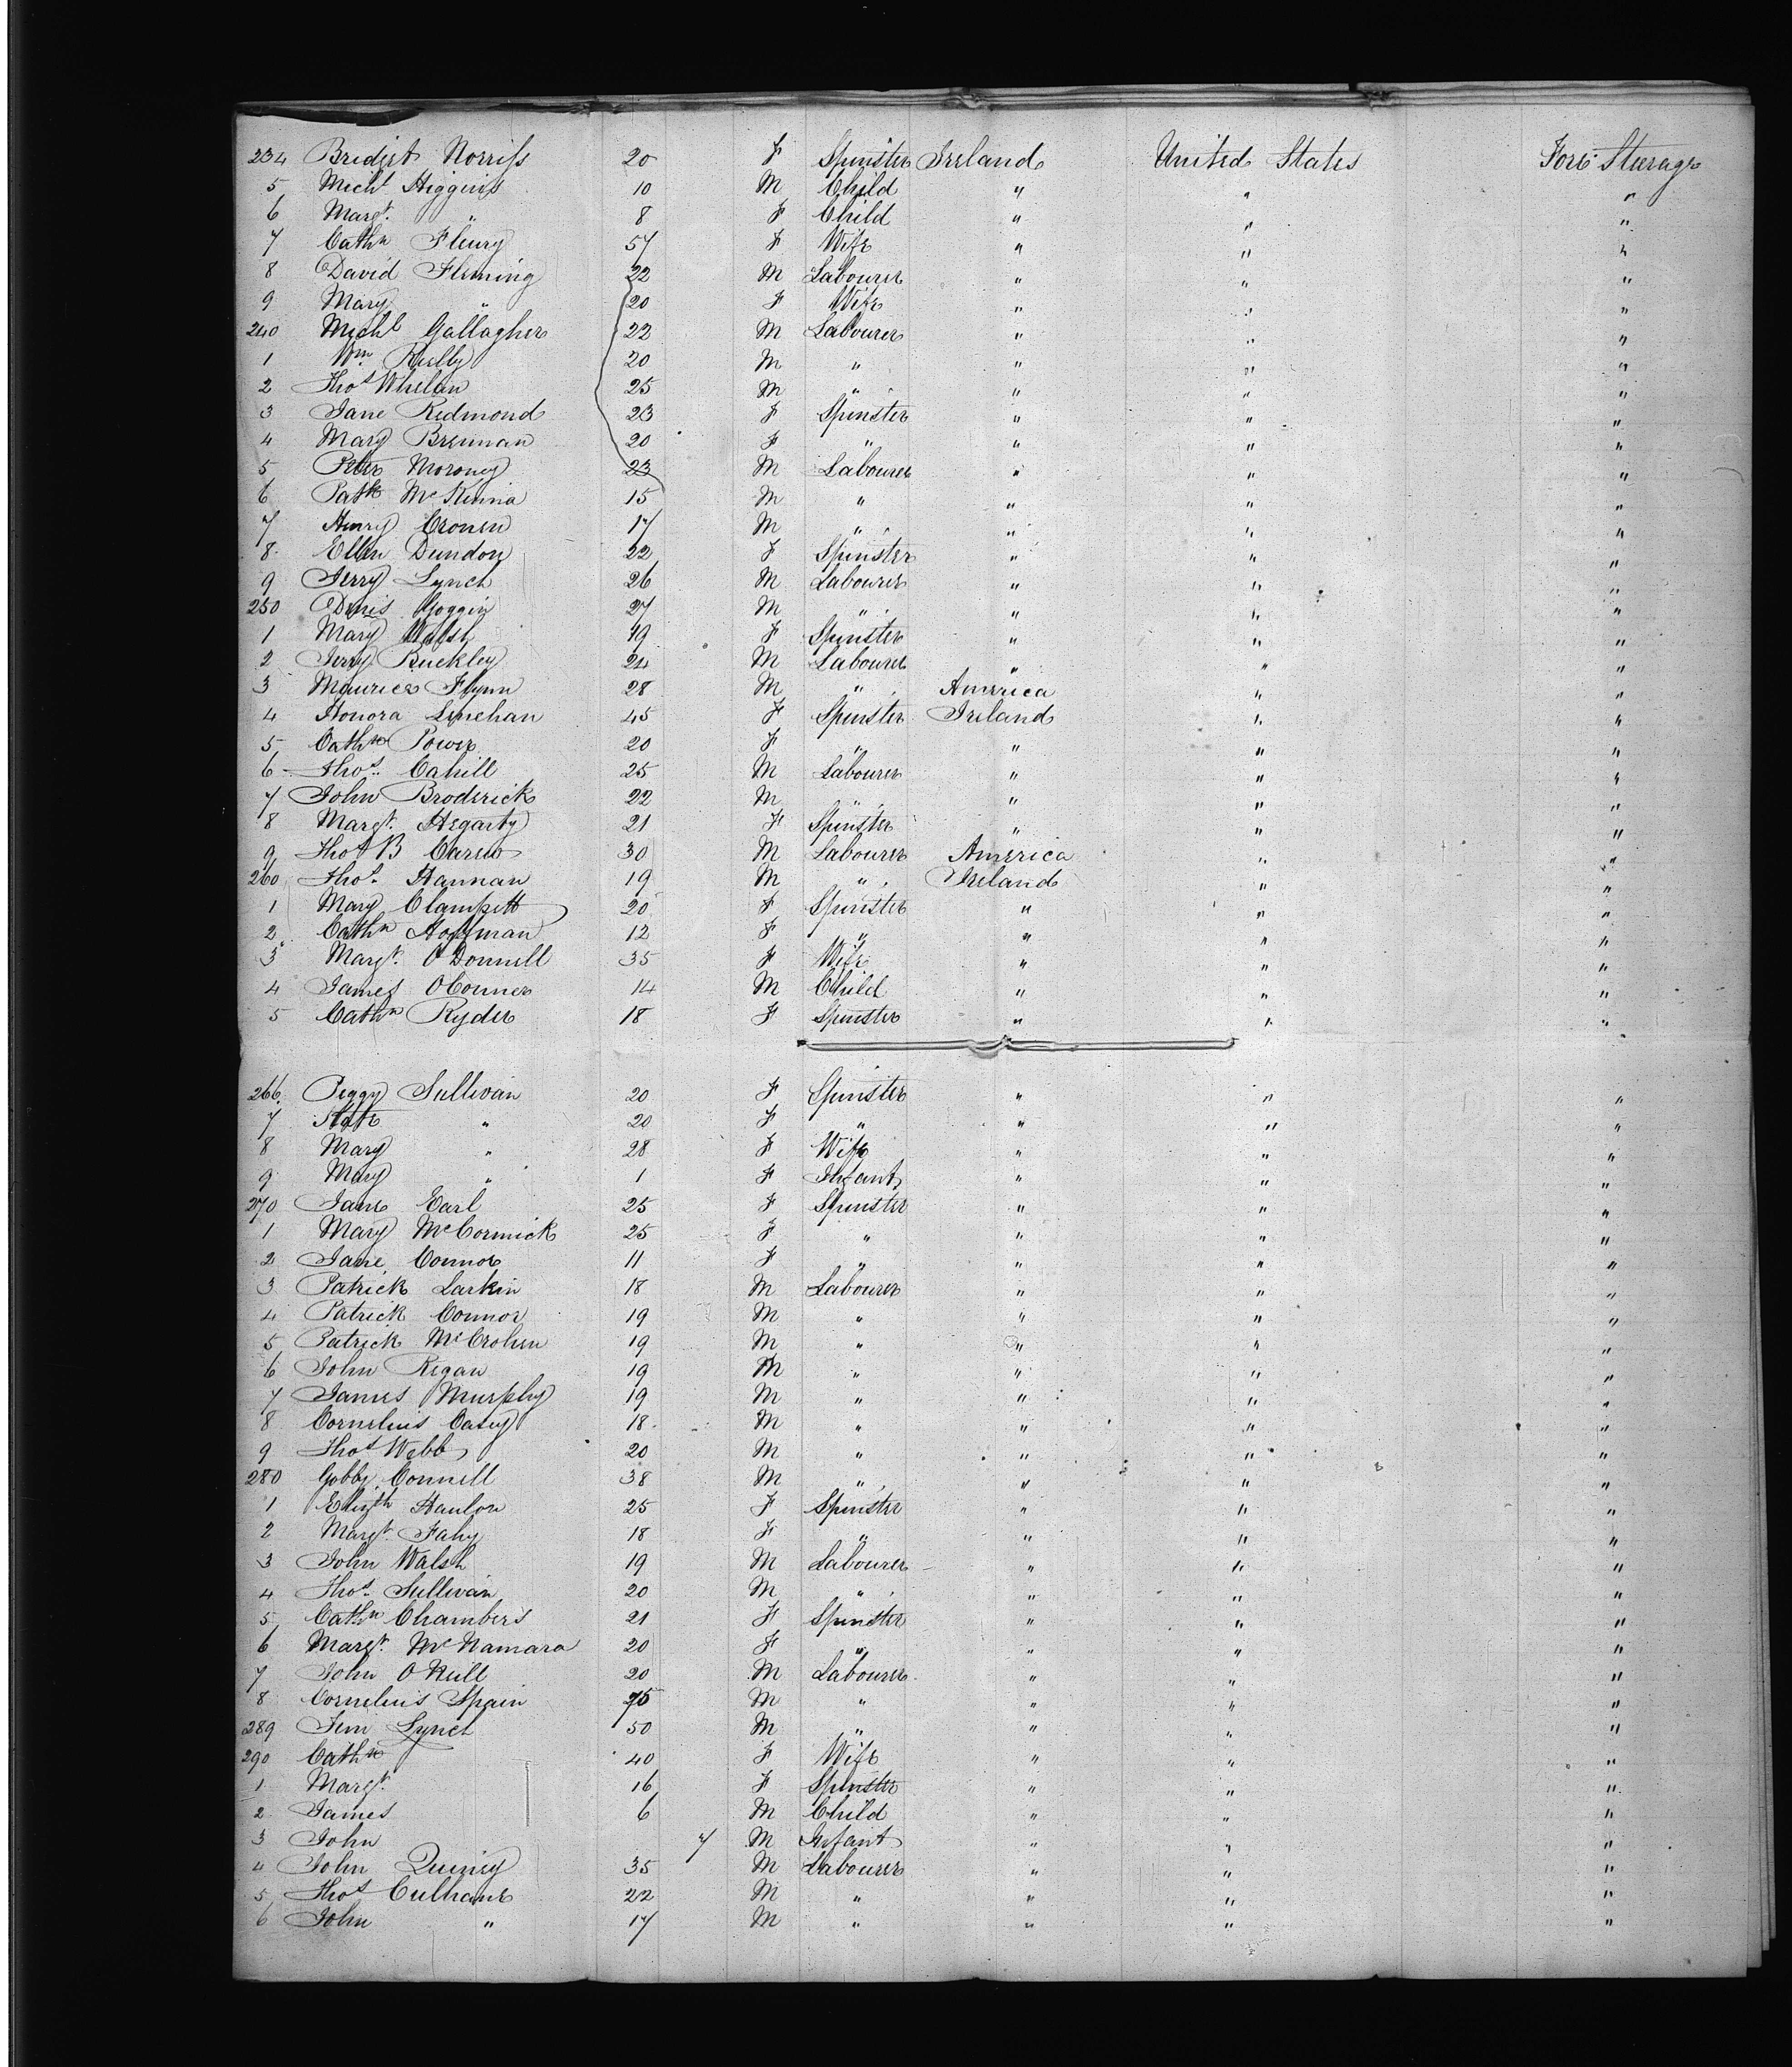 234 Bridget Norriss 20 F Spinster Ireland United States Fore Steerage
5 Michl Higgins 10 M Child " " "
6 Margt. " 8 F Child " " "
7 Cathn Fleury 57 F Wife " " "
8 David Fleming 22 M Labourer " " "
9 Mary " 20 F Wife " " "
240 Michl Gallagher 22 M Labourer " " "
1 Wm Reilly 20 M " " " "
2 Thos Whelan 25 M " " " "
3 Jane Redmond 23 F Spinster " " "
4 Mary Brennan 20 F " " " "
5 Peter Moroney 23 M Labourer " " "
6 Patk McKenna 15 M " " " "
7 Henry Cronen 17 M " " " "
8 Ellen Dundon 22 F Spinster " " "
9 Jerry Lynch 26 M Labourer " " "
250 Denis Goggin 27 M " " " "
1 Mary Walsh 19 F Spinster " " "
2 Jerry Buckley 24 M Labourer " " "
3 Maurice Flynn 28 M " America " "
4 Honora Linehan 45 F Spinster Ireland " "
5 Cathn Power 20 F " " " "
6 Thos. Cahill 25 M Labourer " " "
7 John Broderick 22 M " " " "
8 Margt. Hegarty 21 F Spinster " " "
9 Thos B Carew 30 M Labourer America " "
260 Thos. Hannan 19 M " Ireland " "
1 Mary Clampett 20 F Spinster " " "
2 Cathn Hoffman 12 F " " " "
3 Margt. O'Donnell 35 F Wife " " "
4 James OConner 14 M Child " " "
5 Cathn Ryder 18 F Spinster " " "
266 Peggy Sullivan 20 F Spinster " " "
7 Kate " 20 F " " " "
8 Mary " 28 F Wife " " "
9 Mary " 1 F Infant " " "
270 Jane Earl 25 F Spinster " " "
1 Mary McCormick 25 F " " " "
2 Jane Connor 11 F " " " "
3 Patrick Larkin 18 M Labourer " " "
4 Patrick Connor 19 M " " " "
5 Patrick McCrohen 19 M " " " "
6 John Regan 19 M " " " "
7 James Murphy 19 M " " " "
8 Cornelius Casey 18 M " " " "
9 Thos Webb 20 M " " " "
280 Gobby Connell 38 M " " " "
1 Elizth Hanlon 25 F Spinster " " "
2 Margt. Fahy 18 F " " " "
3 John Walsh 19 M Labourer " " "
4 Thos. Sullivan 20 M " " " "
5 Cathn Chambers 21 F Spinster " " "
6 Margt. McNamara 20 F " " " "
7 John O'Neill 20 M Labourer " " "
8 Cornelius Spain M " " " "
289 Lynch 50 M " " " "
290 Cathn 40 F Wife " " "
1 Margt. 16 F Spinster " " "
2 James 6 M Child " " "
3 John 7 M Infant " " "
4 John 35 M Labourer " " "
5 Thos Culhane 22 M " " " "
6 John " 17 M " " " "